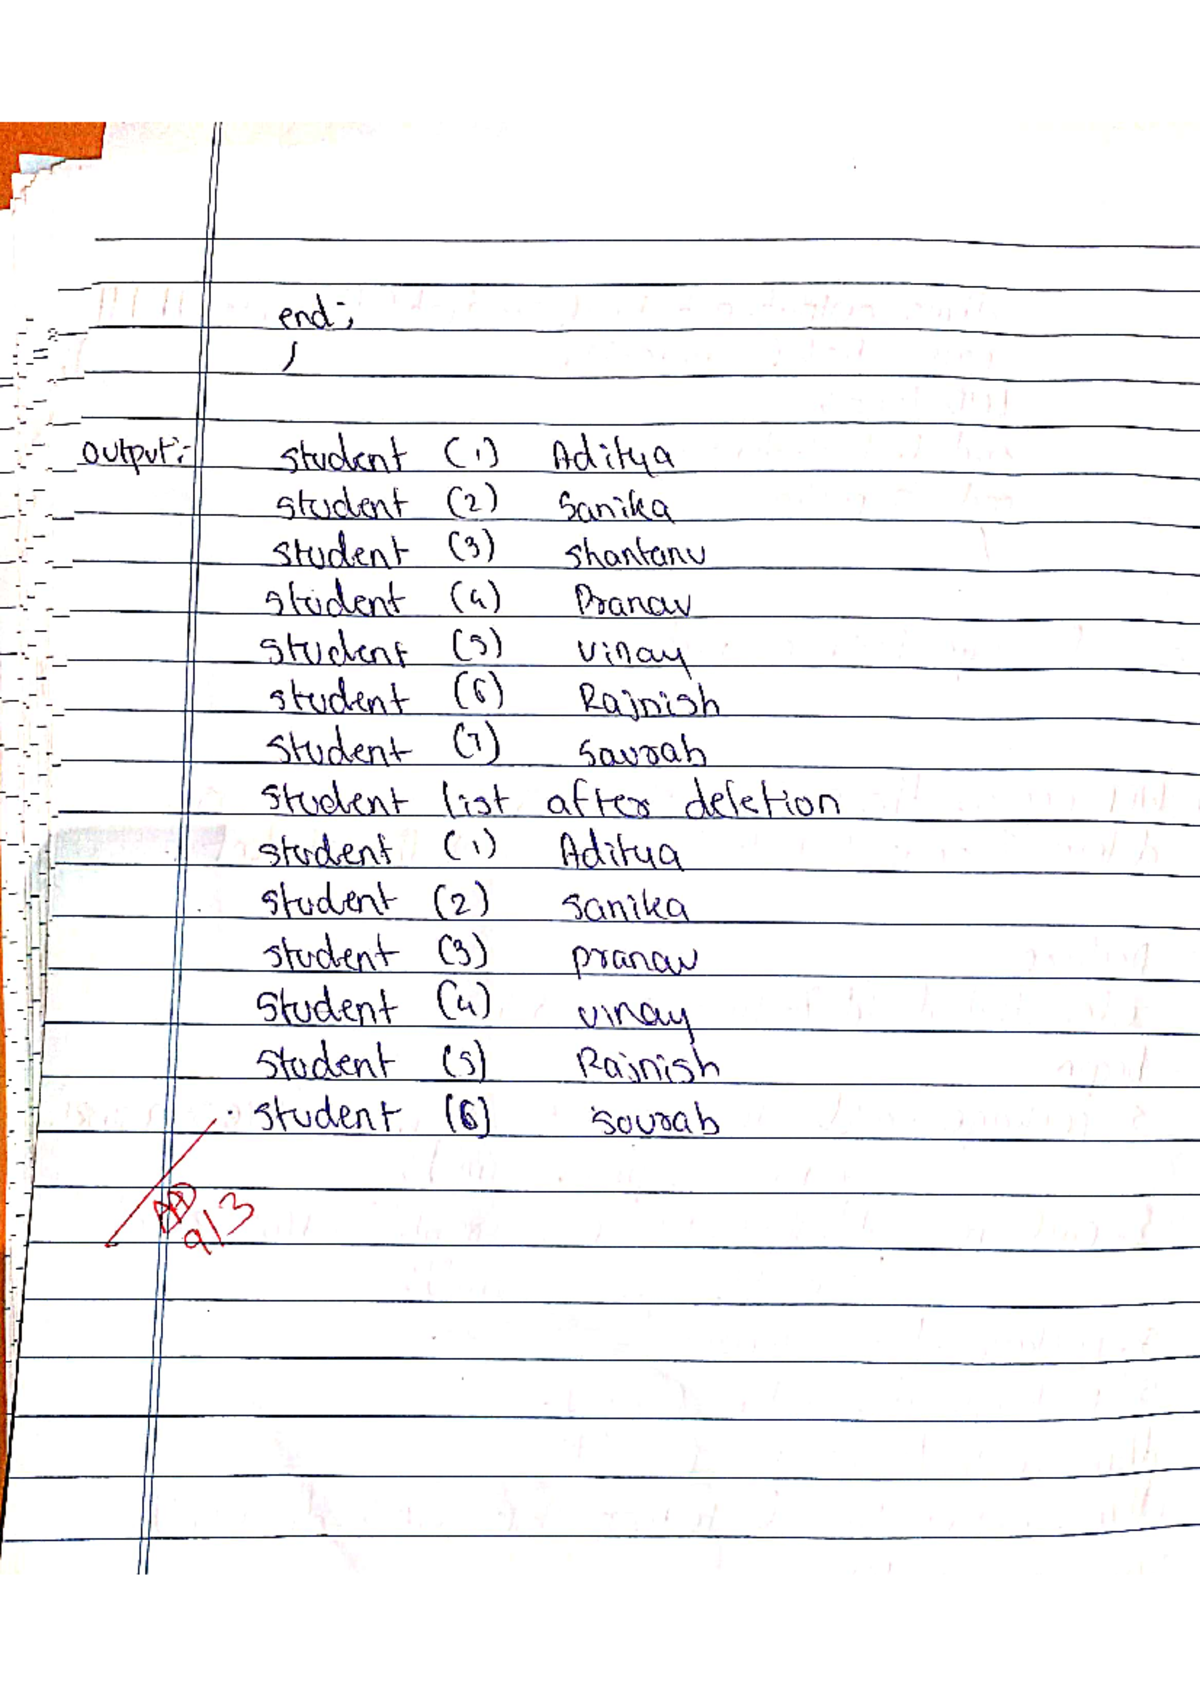 end;
/
output:-
student (1) Aditya
student (2) Sanika
student (3) shantanu
student (4) Pranav
student (5) vinay
student (6) Rajnish
student (7) Saurab
student list after deletion
student (1) Aditya
student (2) sanika
student (3) pranav
student (4) vinay
student (5) Rajnish
student (6) sourab
9/3